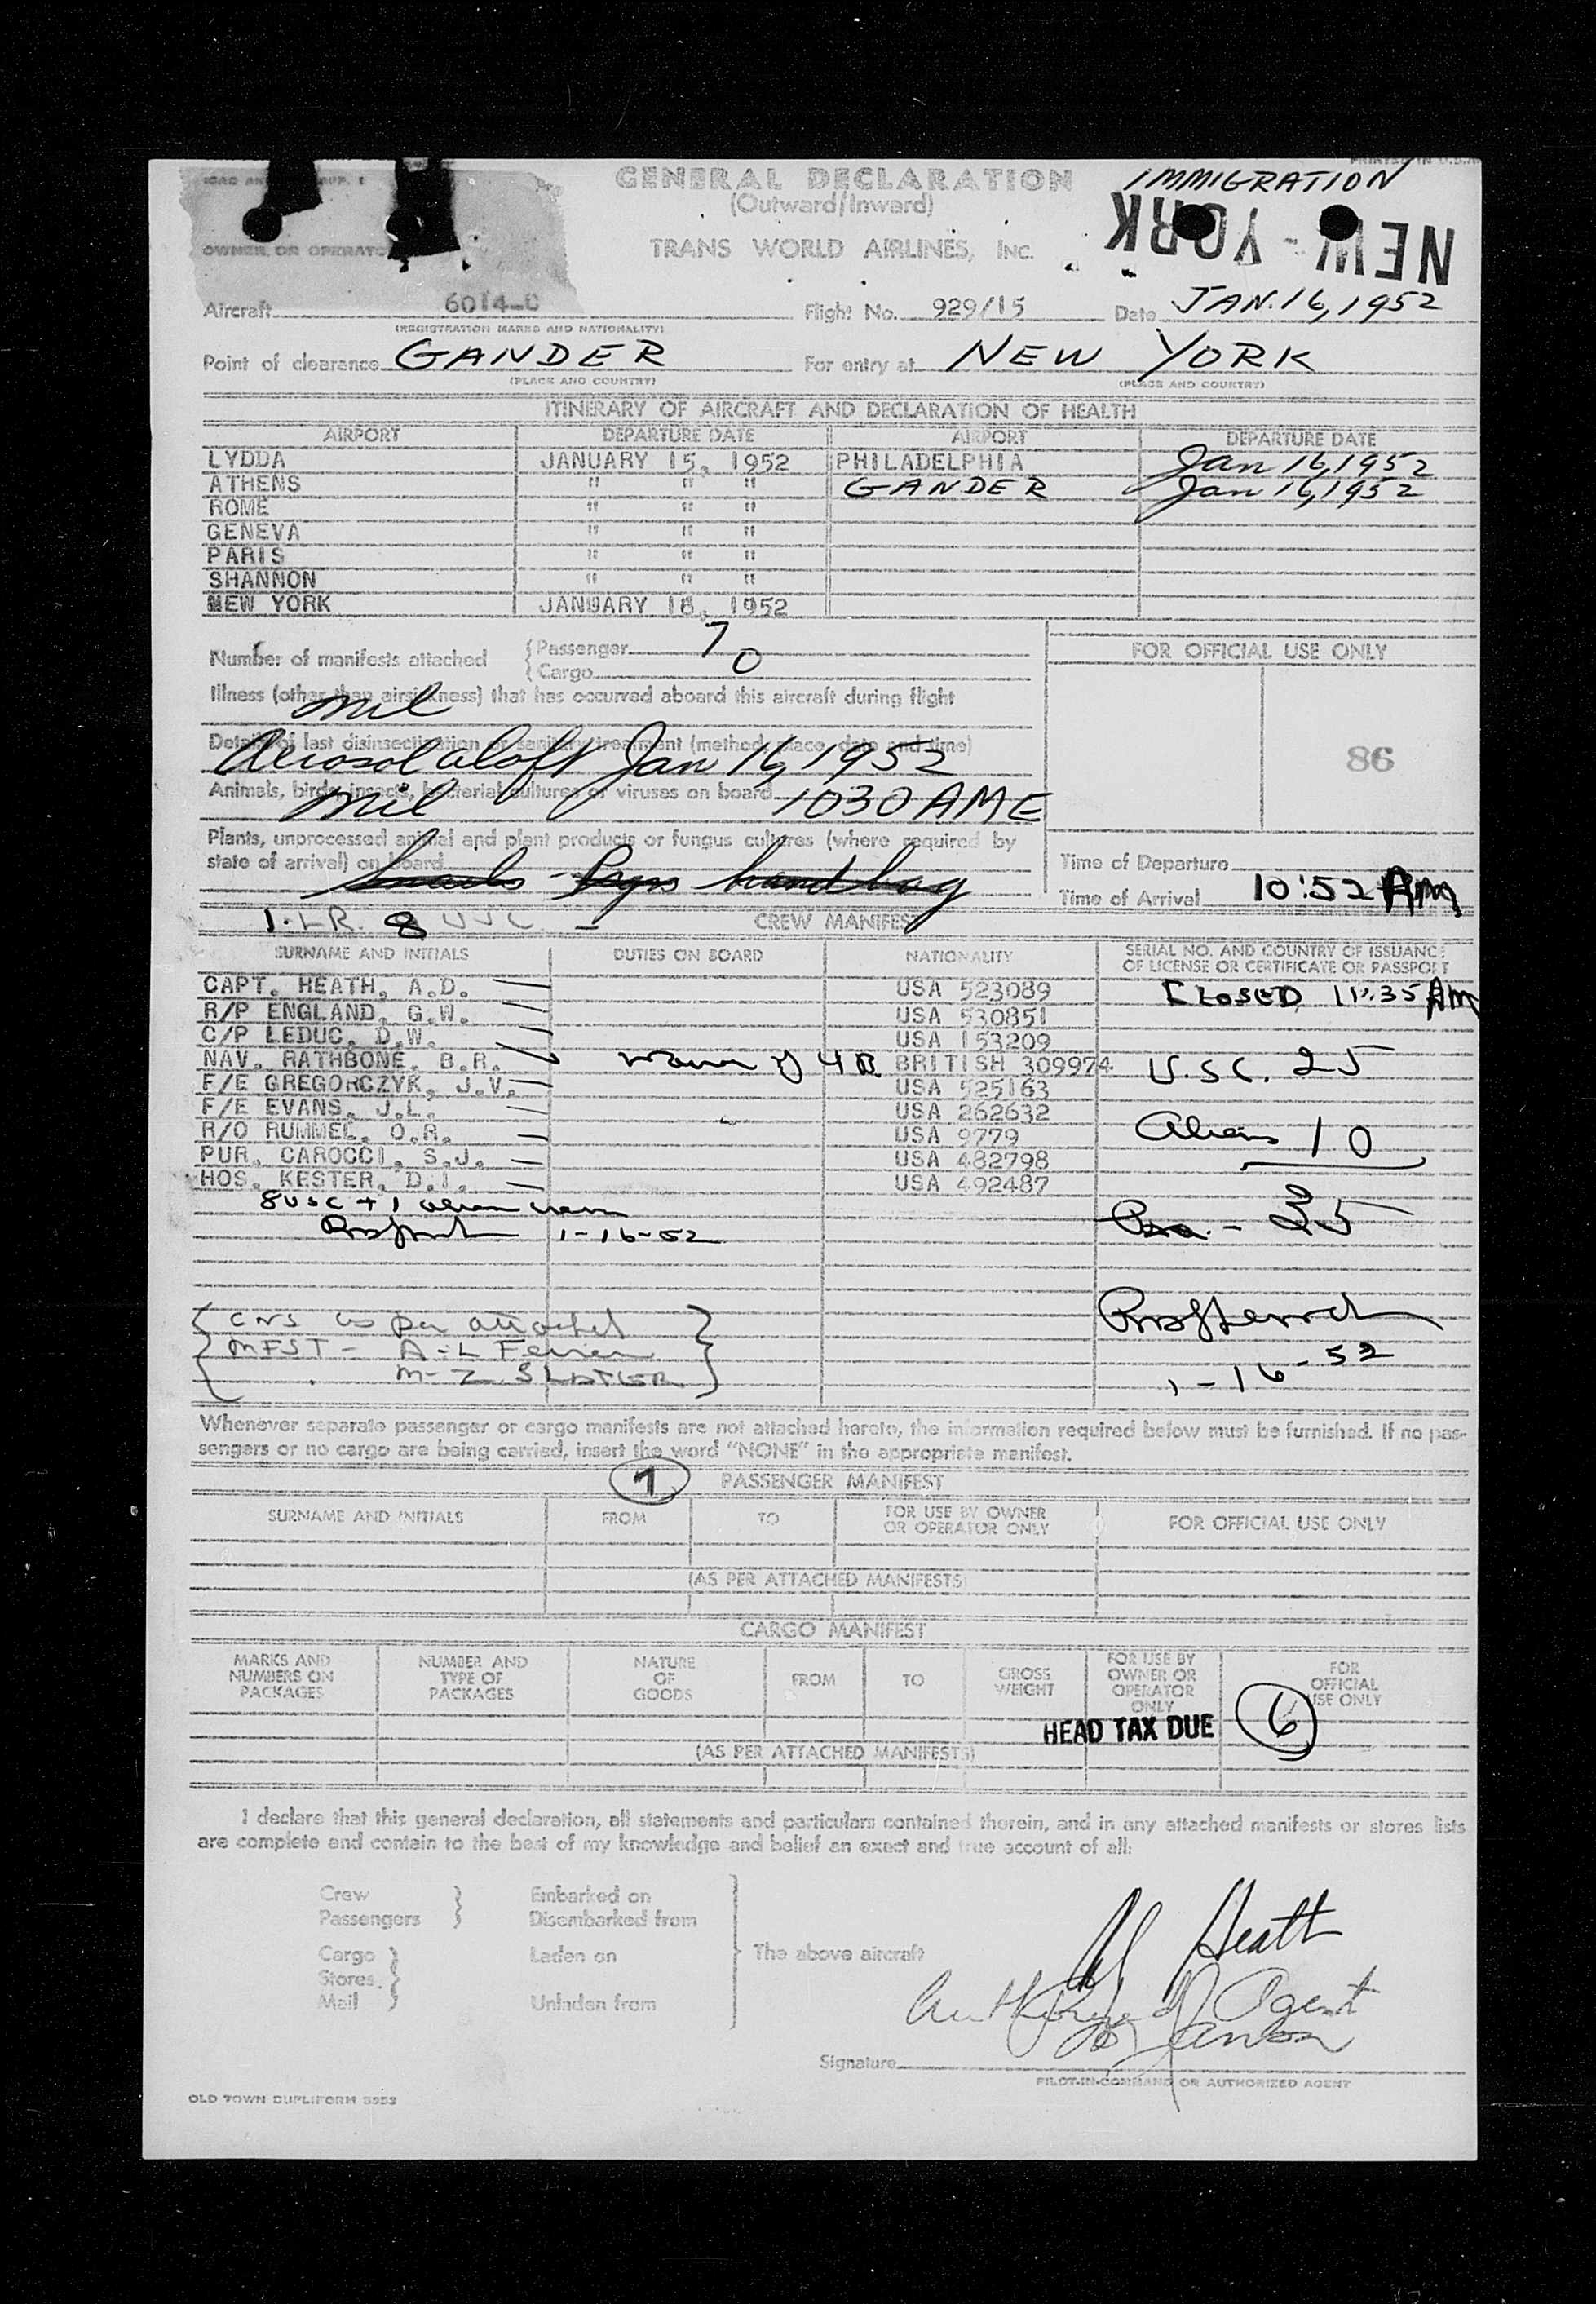 PRINTED IN U.S.A.
GENERAL DECLARATION
IMMIGRATION
(Outward/Inward)
NEW YORK
OWNER OR OPERATOR
TRANS WORLD AIRLINES, Inc.
Aircraft 6014-C Flight No. 929/15 Date JAN. 16, 1952
(REGISTRATION MARKS AND NATIONALITY)
Point of clearance GANDER For entry at NEW YORK
(PLACE AND COUNTRY) (PLACE AND COUNTRY)
ITINERARY OF AIRCRAFT AND DECLARATION OF HEALTH
AIRPORT DEPARTURE DATE AIRPORT DEPARTURE DATE
LYDDA JANUARY 15, 1952 PHILADELPHIA Jan 16, 1952
ATHENS " " " GANDER Jan 16, 1952
ROME " " "
GENEVA " " "
PARIS " " "
SHANNON " " "
NEW YORK JANUARY 16, 1952
Number of manifests attached { Passenger 7
Cargo 0
FOR OFFICIAL USE ONLY
Illness (other than airsickness) that has occurred aboard this aircraft during flight
nil
Details of last disinsectization or sanitary treatment (method, place, date and time)
Aerosol aloft Jan 16, 1952
86
Animals, birds, insects, bacterial cultures or viruses on board 1030 AME
nil
Plants, unprocessed animal and plant products or fungus cultures (where required by
state of arrival) on board
hand bag
Time of Departure
Time of Arrival 10:52 AM
1-LR. 8 USC
CREW MANIFEST
SURNAME AND INITIALS DUTIES ON BOARD NATIONALITY SERIAL NO. AND COUNTRY OF ISSUANCE OF LICENSE OR CERTIFICATE OR PASSPORT
CAPT. HEATH, A.D. USA 523089 CLOSED 11:35 AM
R/P ENGLAND, G.W. USA 530851
C/P LEDUC, D.W. USA 153209
NAV. RATHBONE, B.R. BRITISH 309974 U.S.C. 25
F/E GREGORCZYK, J.V. USA 525163
F/E EVANS, J.L. USA 262632
R/O RUMMEL, O.R. USA 9779 Aliens 10
PUR. CAROCCI, S.J. USA 482798
HOS. KESTER, D.I. USA 492487
8 USC + 1 alien crew
35
1-16-52
{ CNS as per attached }
MFST - A-L
M-Z SLATTER
1-16-52
Whenever separate passenger or cargo manifests are not attached hereto, the information required below must be furnished. If no pas-
sengers or no cargo are being carried, insert the word "NONE" in the appropriate manifest.
7 PASSENGER MANIFEST
SURNAME AND INITIALS FROM TO FOR USE BY OWNER OR OPERATOR ONLY FOR OFFICIAL USE ONLY
(AS PER ATTACHED MANIFESTS)
CARGO MANIFEST
MARKS AND NUMBERS ON PACKAGES NUMBER AND TYPE OF PACKAGES NATURE OF GOODS FROM TO GROSS WEIGHT FOR USE BY OWNER OR OPERATOR ONLY FOR OFFICIAL USE ONLY
HEAD TAX DUE 6
(AS PER ATTACHED MANIFESTS)
I declare that this general declaration, all statements and particulars contained therein, and in any attached manifests or stores lists
are complete and contain to the best of my knowledge and belief an exact and true account of all:
Crew Embarked on
Passengers } Disembarked from
Cargo Laden on
Stores }
Mail Unladen from
The above aircraft
Heath
Authorized Agent
Signature
PILOT-IN-COMMAND OR AUTHORIZED AGENT
OLD TOWN DUPLIFORM 5353